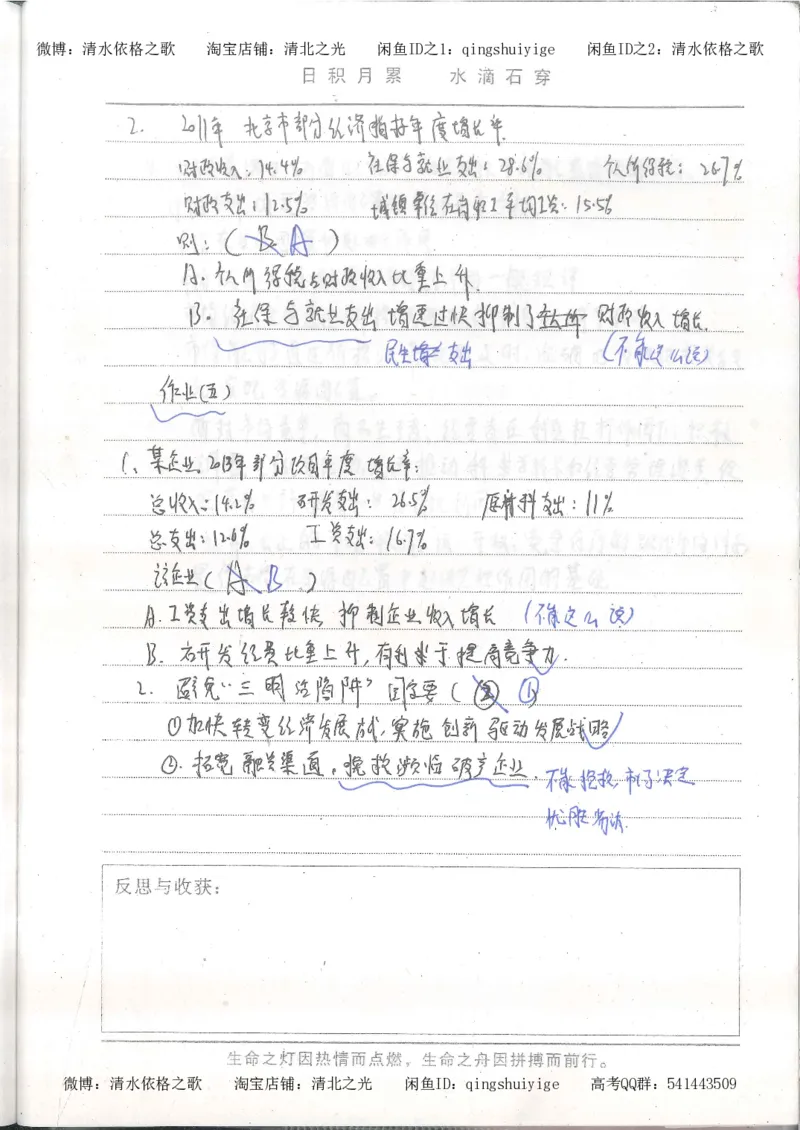 微博：清水依格之歌 淘宝店铺：清北之光 闲鱼ID之1：qingshuiyige 闲鱼ID之2：清水依格之歌
日积月累 水滴石穿
2. 2011年 北京市部分经济指标年度增长率.
财政收入：14.4% 社保与就业支出：28.6% 个人所得税：26.7%
财政支出：12.5% 城镇单位在岗职工平均工资：15.5%
则：( B A )
A. 个人所得税占财政收入比重上升.
B. 社保与就业支出增速过快抑制了 财政收入增长.
民生 支出 (不能这么说)
作业(五)
1、某企业，2013年部分项目年度增长率：
总收入：14.2% 研发支出：26.5% 原材料支出：11%
总支出：12.6% 工资支出：16.7%
该企业 ( A B )
A. 工资支出增长较快，抑制企业收入增长 (不能这么说)
B. 研发经费比重上升，有利于提高竞争力.
2. 避免“三明治陷阱” 国家要 ( ② ① )
①加快转变经济发展方式，实施创新驱动发展战略
②. 拓宽融资渠道，挽救濒临破产企业.
不能挽救，市场决定
优胜劣汰.
反思与收获：
生命之灯因热情而点燃，生命之舟因拼搏而前行。
微博：清水依格之歌 淘宝店铺：清北之光 闲鱼ID：qingshuiyige 高考QQ群：541443509